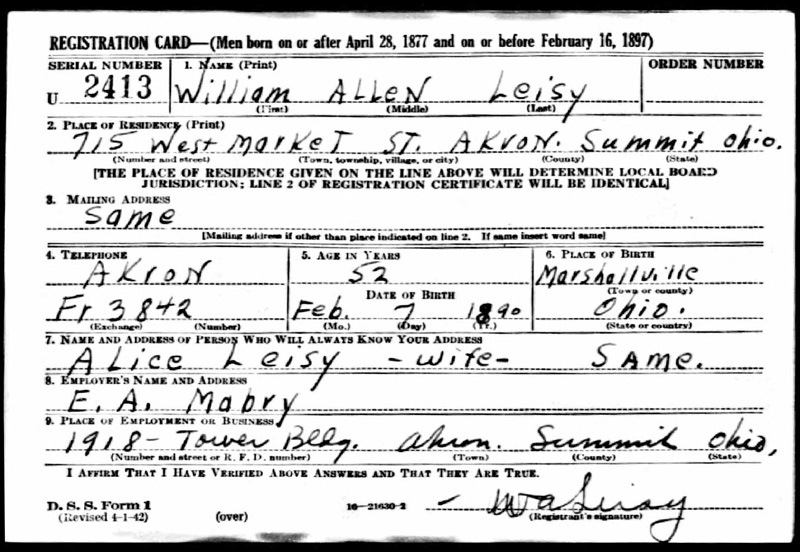 REGISTRATION CARD—(Men born on or after April 28, 1877 and on or before February 16, 1897)
SERIAL NUMBER 1. NAME (Print) ORDER NUMBER
U 2413 William ALLEN Leisy
(First) (Middle) (Last)
2. PLACE OF RESIDENCE (Print)
715 West Market ST. AKRON. Summit Ohio.
(Number and street) (Town, township, village, or city) (County) (State)
[THE PLACE OF RESIDENCE GIVEN ON THE LINE ABOVE WILL DETERMINE LOCAL BOARD
JURISDICTION; LINE 2 OF REGISTRATION CERTIFICATE WILL BE IDENTICAL]
3. MAILING ADDRESS
Same
[Mailing address if other than place indicated on line 2. If same insert word same]
4. TELEPHONE 5. AGE IN YEARS 6. PLACE OF BIRTH
AKRON 52 Marshallville
DATE OF BIRTH (Town or county)
Fr 3842 Feb. 7 1890 Ohio.
(Exchange) (Number) (Mo.) (Day) (Yr.) (State or country)
7. NAME AND ADDRESS OF PERSON WHO WILL ALWAYS KNOW YOUR ADDRESS
Alice Leisy - Wife - SAME.
8. EMPLOYER'S NAME AND ADDRESS
E. A. Mabry
9. PLACE OF EMPLOYMENT OR BUSINESS
1918 - Tower Bldg. Akron. Summit Ohio,
(Number and street or R. F. D. number) (Town) (County) (State)
I AFFIRM THAT I HAVE VERIFIED ABOVE ANSWERS AND THAT THEY ARE TRUE.
D. S. S. Form 1
(Revised 4-1-42) (over) 16-21630-2 W A Leisy
(Registrant's signature)